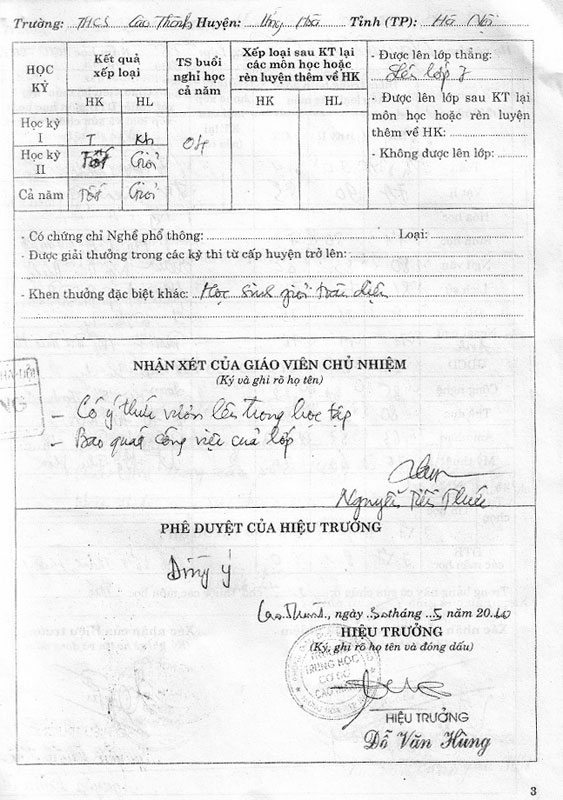 Trường: THCS Cao Thành Huyện: Ứng Hòa Tỉnh (TP): Hà Nội
HỌC KỲ
Kết quả xếp loại
TS buổi nghỉ học cả năm
Xếp loại sau KT lại các môn học hoặc rèn luyện thêm về HK
HK HL HK HL
Học kỳ I T Kh 04
Học kỳ II Tốt Giỏi
Cả năm Tốt Giỏi
- Được lên lớp thẳng:
Lên lớp 7
- Được lên lớp sau KT lại
môn học hoặc rèn luyện
thêm về HK:
- Không được lên lớp:
- Có chứng chỉ Nghề phổ thông: Loại:
- Được giải thưởng trong các kỳ thi từ cấp huyện trở lên:
- Khen thưởng đặc biệt khác: Học sinh giỏi toàn diện
NHẬN XÉT CỦA GIÁO VIÊN CHỦ NHIỆM
(Ký và ghi rõ họ tên)
- Có ý thức vươn lên trong học tập
- Bao quát công việc của lớp
Nguyễn Tiến
PHÊ DUYỆT CỦA HIỆU TRƯỞNG
Đồng ý
Cao Thành, ngày 30 tháng 5 năm 2010
HIỆU TRƯỞNG
(Ký, ghi rõ họ tên và đóng dấu)
TRUNG HỌC
CƠ SỞ
HIỆU TRƯỞNG
Đỗ Văn Hùng
3